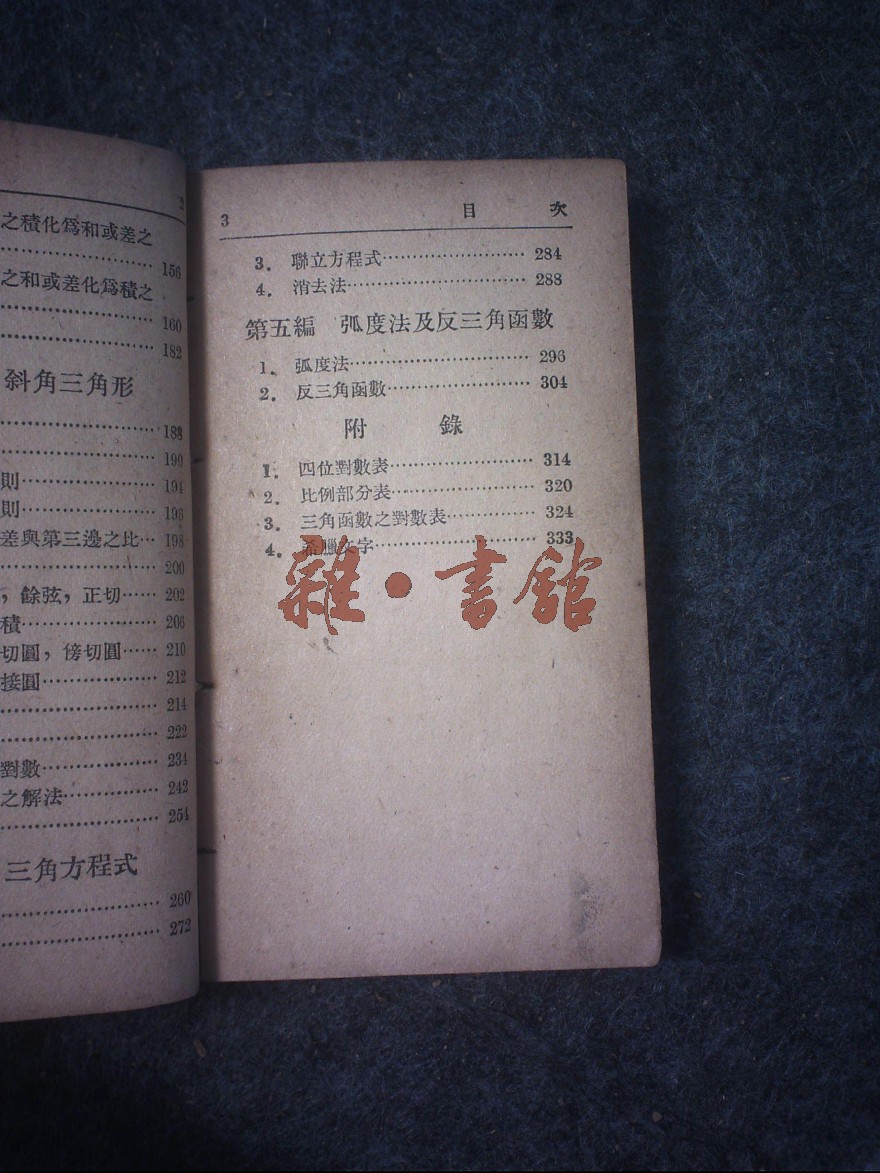 2
之積化爲和或差之
156
之和或差化爲積之
160
182
斜角三角形
188
190
則 194
則 196
差與第三邊之比 198
200
，餘弦，正切 202
積 206
切圓，傍切圓 210
接圓 212
214
222
對數 234
之解法 242
254
三角方程式
260
272
3 目 次
3. 聯立方程式 284
4. 消去法 288
第五編 弧度法及反三角函數
1. 弧度法 296
2. 反三角函數 304
附 錄
1. 四位對數表 314
2. 比例部分表 320
3. 三角函數之對數表 324
4. 希臘文字 333
雜·書館